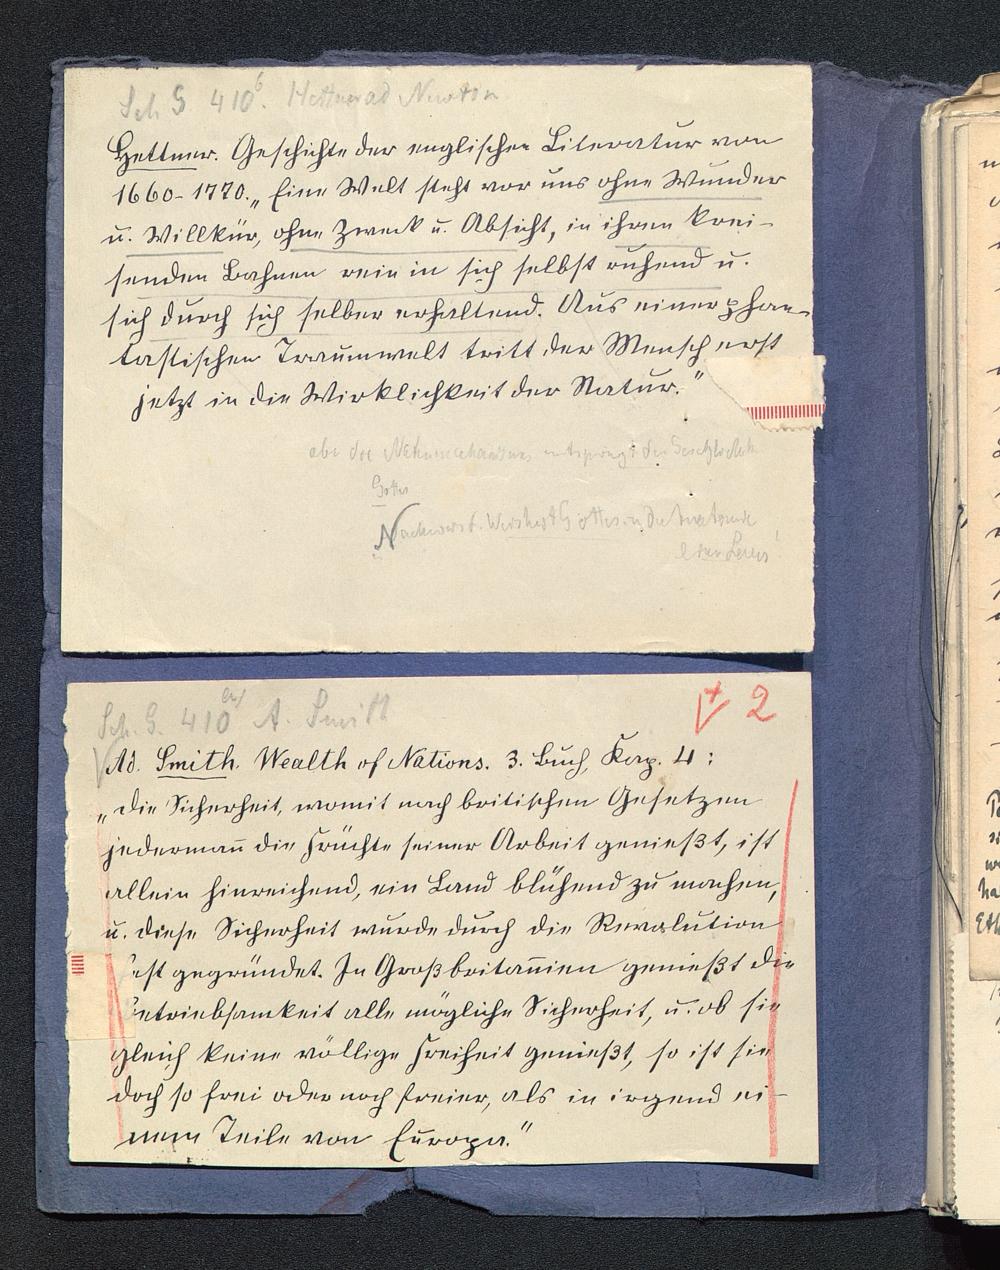 Sch G 410 6. Hettner ad Newton
Hettner. Geschichte der englischen Literatur von
1660-1770. „Eine Welt steht vor uns ohne Wunder
u. Willkür, ohne Zweck u. Absicht, in ihren krei-
senden Bahnen rein in sich selbst ruhend u.
sich durch sich selber erhaltend. Aus einer phan-
tastischen Traumwelt tritt der Mensch erst
jetzt in die Wirklichkeit der Natur."
Gottes
Sch. G. 410 A. Smith
2
Ad. Smith. Wealth of Nations. 3. Buch, Kap. 4:
„Die Sicherheit, womit nach britischen Gesetzen
jedermañ die Früchte seiner Arbeit genießt, ist
allein hinreichend, ein Land blühend zu machen,
u. diese Sicherheit wurde durch die Revolution
fest gegründet. In Großbritañien genießt die
Betriebsamkeit alle mögliche Sicherheit, u. ob sie
gleich keine völlige Freiheit genießt, so ist sie
doch so frei oder noch freier, als in irgend ei-
nem Teile von Europa."